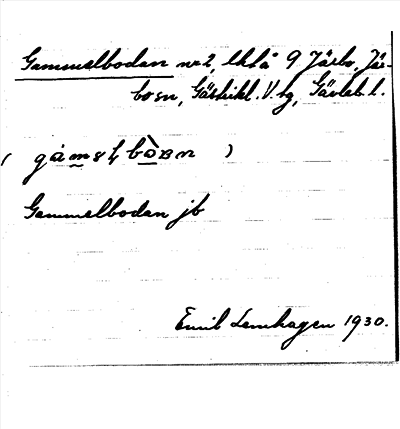 Gammelbodan nr 2, lhlå 9 Järbo, Jär-
bo sn, Gästrikl. V. tg, Gävleb. l.
( gámɐɫ bòɒn )
Gammelbodan jb
Emil Lemhagen 1930.